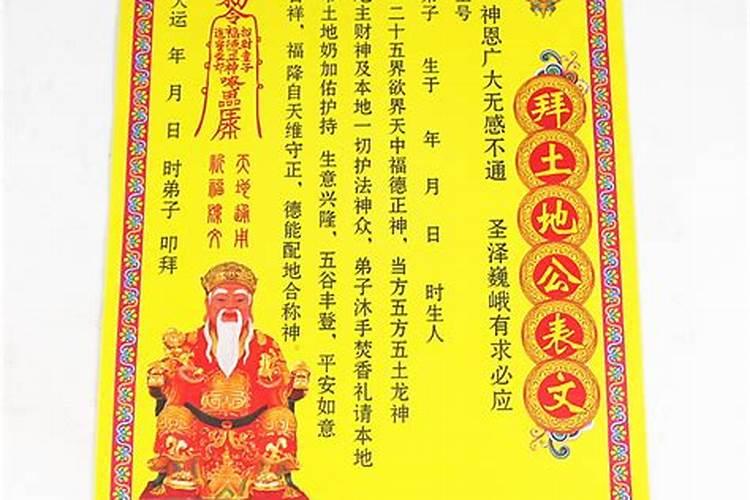 拜土地公表文
神恩广大无感不通 圣泽巍峨有求必应
弟子 生于 年 月 日 时生人
二十五界欲界天中福德正神，当方五方五土龙神
地主财神及本地一切护法神众，弟子沐手焚香礼请本地
土地奶加佑护持 生意兴隆，五谷丰登，平安如意
吉祥，福降自天维守正，德能配地合称神
天地通用
祈福陈文
敕令
招财童子
福德正神
天运 年 月 日 时弟子 叩拜